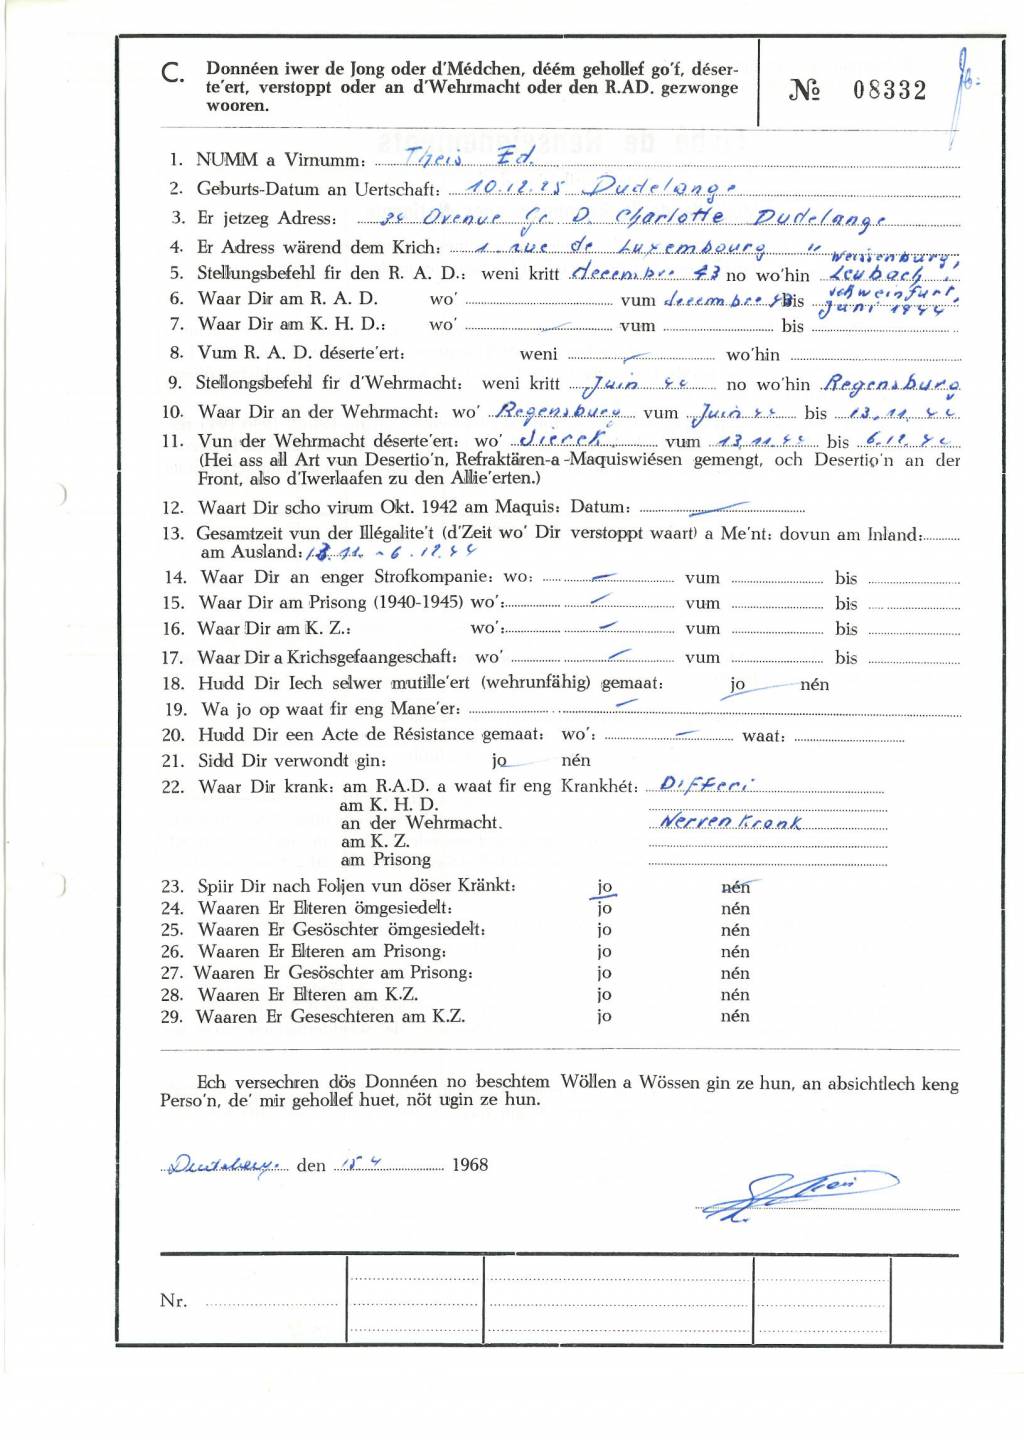 C. Donnéen iwer de Jong oder d'Médchen, déém gehollef go'f, déser-
te'ert, verstoppt oder an d'Wehrmacht oder den R.AD. gezwonge
wooren.
№ 08332
1. NUMM a Virnumm: Theis Ed.
2. Geburts-Datum an Uertschaft: 10.12.25 Dudelange
3. Er jetzeg Adress: Avenue Gr D. Charlotte Dudelange
4. Er Adress wärend dem Krich: 1 rue de Luxembourg "
Weissenburg,
5. Stellungsbefehl fir den R. A. D.: weni kritt decembre 43 no wo'hin Leubach,
Schweinfurt,
6. Waar Dir am R. A. D. wo' vum decembre 43 bis Juni 1944
7. Waar Dir am K. H. D.: wo' — vum bis
8. Vum R. A. D. déserte'ert: weni — wo'hin
9. Stellongsbefehl fir d'Wehrmacht: weni kritt Juin 44 no wo'hin Regensburg
10. Waar Dir an der Wehrmacht: wo' Regensburg vum Juin 44 bis 13.11.44
11. Vun der Wehrmacht déserte'ert: wo' Sierck vum 13.11.44 bis 6.12.44
(Hei ass all Art vun Desertio'n, Refraktären-a-Maquiswiésen gemengt, och Desertio'n an der
Front, also d'Iwerlaafen zu den Allie'erten.)
12. Waart Dir scho virum Okt. 1942 am Maquis: Datum: —
13. Gesamtzeit vun der Illégalite't (d'Zeit wo' Dir verstoppt waart) a Me'nt: dovun am Inland:
am Ausland: 13.11. - 6.12.44
14. Waar Dir an enger Strofkompanie: wo: — vum bis
15. Waar Dir am Prisong (1940-1945) wo': — vum bis
16. Waar Dir am K. Z.: wo': — vum bis
17. Waar Dir a Krichsgefaangeschaft: wo' — vum bis
18. Hudd Dir Iech selwer mutille'ert (wehrunfähig) gemaat: jo nén
19. Wa jo op waat fir eng Mane'er: —
20. Hudd Dir een Acte de Résistance gemaat: wo': — waat:
21. Sidd Dir verwondt gin: jo nén
22. Waar Dir krank: am R.A.D. a waat fir eng Krankhét: Differi
am K. H. D.
an der Wehrmacht. Nerven Krank
am K. Z.
am Prisong
23. Spiir Dir nach Foljen vun döser Kränkt: jo nén
24. Waaren Er Elteren ömgesiedelt: jo nén
25. Waaren Er Gesöschter ömgesiedelt: jo nén
26. Waaren Er Elteren am Prisong: jo nén
27. Waaren Er Gesöschter am Prisong: jo nén
28. Waaren Er Elteren am K.Z. jo nén
29. Waaren Er Geseschteren am K.Z. jo nén
Ech versechren dös Donnéen no beschtem Wöllen a Wössen gin ze hun, an absichtlech keng
Perso'n, de' mir gehollef huet, nöt ugin ze hun.
den 15 4 1968
Nr.